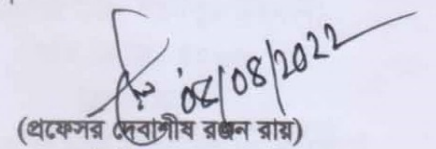 04/08/2022
(প্রফেসর দেবাশীষ রঞ্জন রায়)